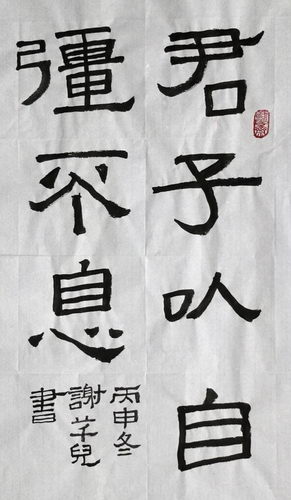 君子以自
彊不息
丙申冬
謝芊兒
書